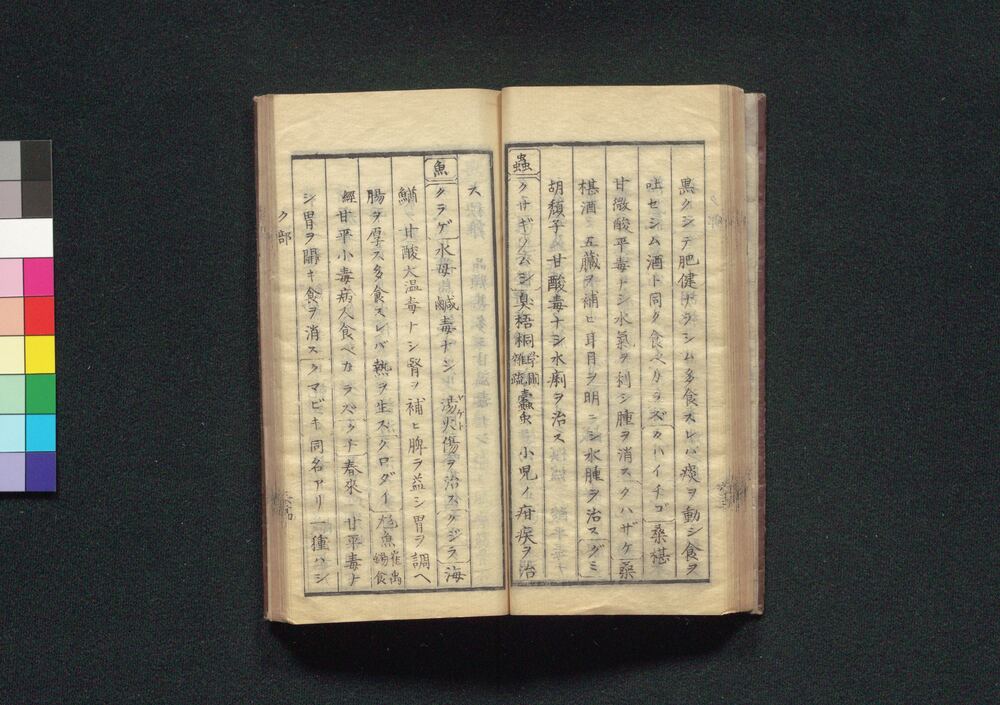 黒クシテ肥健ナラシム多食スレバ痰ヲ動シ食ヲ
吐セシム酒ト同ク食ベカラズカハイチゴ桑椹
甘微酸平毒ナシ水氣ヲ利シ腫ヲ消スクハザケ桑
椹酒 五臓ヲ補ヒ耳目ヲ明ニシ水腫ヲ治スグミ
胡頽子甘酸毒ナシ水痢ヲ治ス
蟲 クサギノムシ臭梧桐蠧虫 小児ノ疳疾ヲ治
ス
魚 クラゲ水母鹹毒ナシ湯火傷ヲ治スクジラ海
鰌 甘酸大温毒ナシ腎ヲ補ヒ脾ヲ益シ胃ヲ調ヘ
腸ヲ厚ス多食スレバ熱ヲ生スクロダイ 魚崔禹錫食
經甘平小毒病人食ベカラズクチ春來 甘平毒ナ
シ胃ヲ開キ食ヲ消スクマビキ同名アリ一種ハシ
ク部